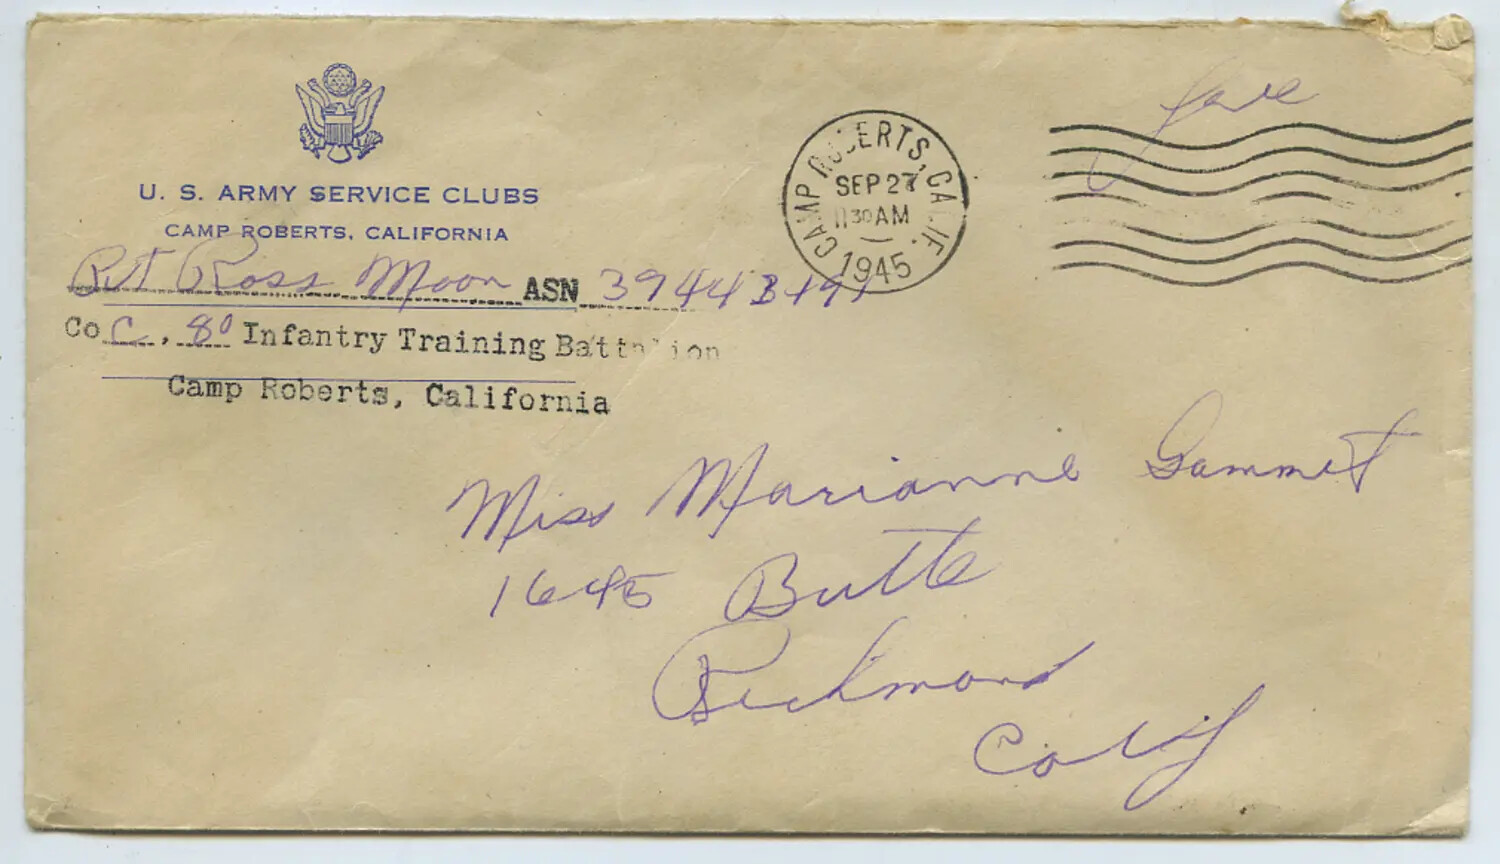 U. S. ARMY SERVICE CLUBS
CAMP ROBERTS, CALIFORNIA
Pvt Ross Moon ASN 39444
Co C, 80 Infantry Training Battalion
Camp Roberts, California
CAMP ROBERTS, CALIF.
SEP 27
11 30 AM
1945
Free
Miss Marianne Gammet
1645 Butte
Richmond
Calif